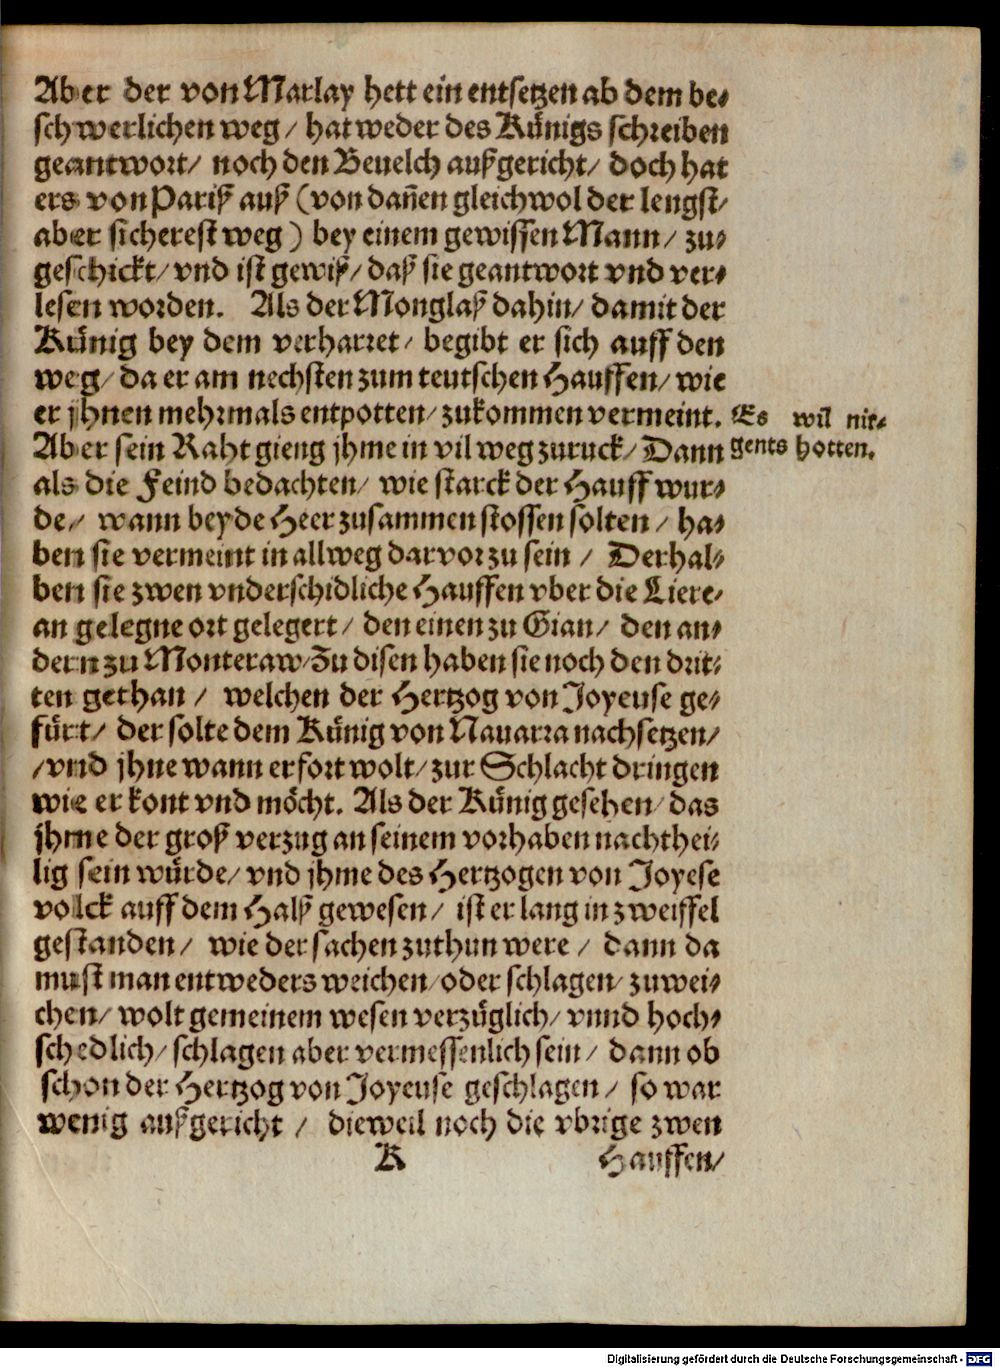 Aber der von Marlay hett ein entsetzen ab dem be-
schwerlichen weg / hat weder des Künigs schreiben
geantwort / noch den Beuelch außgericht / doch hat
ers von Pariß auß (von dañen gleichwol der lengst /
aber sicherest weg) bey einem gewissen Mann / zu-
geschickt / vnd ist gewiß / daß sie geantwort vnd ver-
lesen worden. Als der Monglaß dahin / damit der
Künig bey dem verharret / begibt er sich auff den
weg / da er am nechsten zum teutschen Hauffen / wie
er jhnen mehrmals entpotten / zukommen vermeint.
Es wil nir-
gents hotten.
Aber sein Raht gieng jhme in vil weg zuruck / Dann
als die Feind bedachten / wie starck der Hauff wur-
de / wann beyde Heer zusammen stossen solten / ha-
ben sie vermeint in allweg darvor zu sein / Derhal-
ben sie zwen vnderschidliche Hauffen vber die Liere /
an gelegne ort gelegert / den einen zu Gian / den an-
dern zu Monteraw / Zu disen haben sie noch den drit-
ten gethan / welchen der Hertzog von Joyeuse ge-
fürt / der solte dem Künig von Nauarra nachsetzen /
/ vnd jhne wann er fort wolt / zur Schlacht dringen
wie er kont vnd möcht. Als der Künig gesehen / das
jhme der groß verzug an seinem vorhaben nachthei-
lig sein würde / vnd jhme des Hertzogen von Joyese
volck auff dem Halß gewesen / ist er lang in zweiffel
gestanden / wie der sachen zuthun were / dann da
must man entweders weichen / oder schlagen / zuwei-
chen / wolt gemeinem wesen verzüglich / vnnd hoch-
schedlich / schlagen aber vermessenlich sein / dann ob
schon der Hertzog von Joyeuse geschlagen / so war
wenig außgericht / dieweil noch die vbrige zwen
K Hauffen /
Digitalisierung gefördert durch die Deutsche Forschungsgemeinschaft - DFG